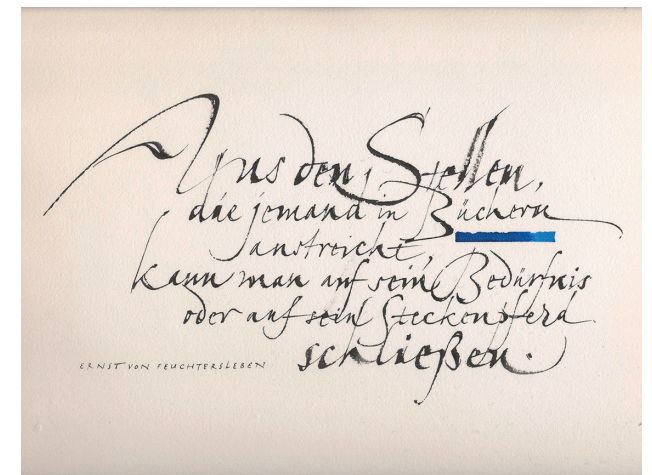 Aus den Stellen,
die jemand in Büchern
anstreicht,
kann man auf sein Bedürfnis
oder auf sein Steckenpferd
schließen.
ERNST VON FEUCHTERSLEBEN